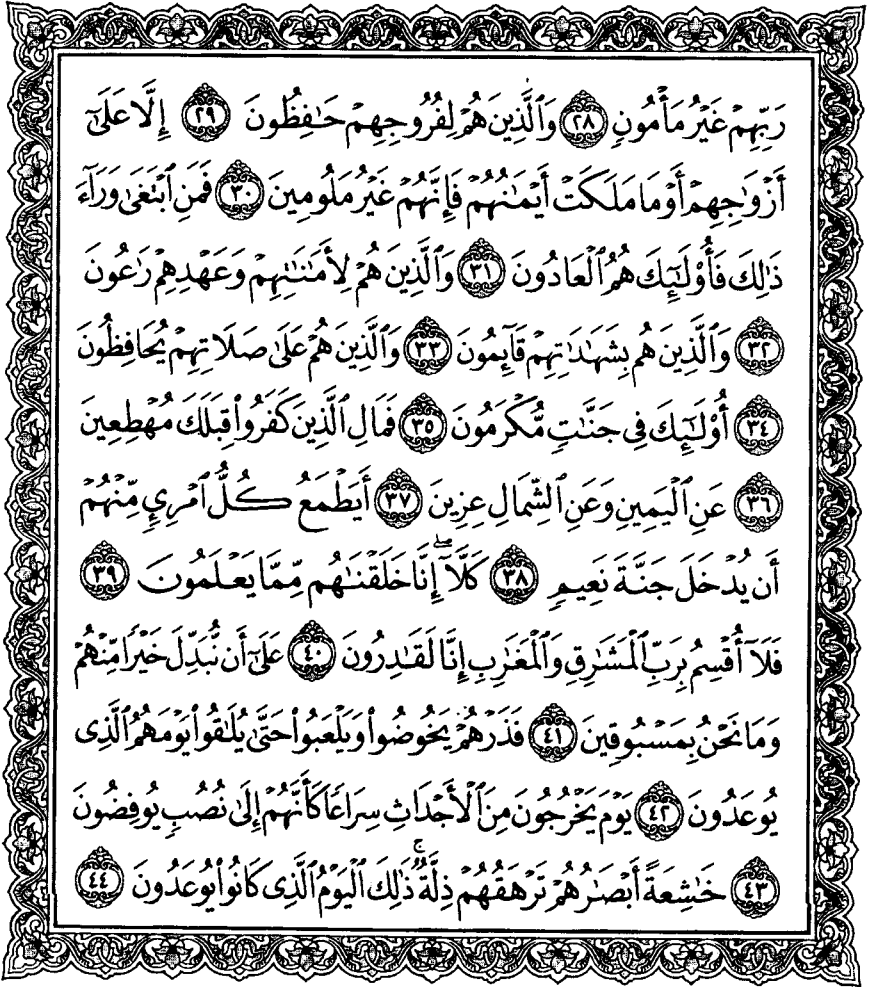 رَبِّهِمْ غَيْرُ مَأْمُونٍ ٢٨ وَٱلَّذِينَ هُمْ لِفُرُوجِهِمْ حَٰفِظُونَ ٢٩ إِلَّا عَلَىٰٓ
أَزْوَٰجِهِمْ أَوْ مَا مَلَكَتْ أَيْمَٰنُهُمْ فَإِنَّهُمْ غَيْرُ مَلُومِينَ ٣٠ فَمَنِ ٱبْتَغَىٰ وَرَآءَ
ذَٰلِكَ فَأُو۟لَٰٓئِكَ هُمُ ٱلْعَادُونَ ٣١ وَٱلَّذِينَ هُمْ لِأَمَٰنَٰتِهِمْ وَعَهْدِهِمْ رَٰعُونَ
٣٢ وَٱلَّذِينَ هُم بِشَهَٰدَٰتِهِمْ قَآئِمُونَ ٣٣ وَٱلَّذِينَ هُمْ عَلَىٰ صَلَاتِهِمْ يُحَافِظُونَ
٣٤ أُو۟لَٰٓئِكَ فِى جَنَّٰتٍ مُّكْرَمُونَ ٣٥ فَمَالِ ٱلَّذِينَ كَفَرُوا۟ قِبَلَكَ مُهْطِعِينَ
٣٦ عَنِ ٱلْيَمِينِ وَعَنِ ٱلشِّمَالِ عِزِينَ ٣٧ أَيَطْمَعُ كُلُّ ٱمْرِئٍ مِّنْهُمْ
أَن يُدْخَلَ جَنَّةَ نَعِيمٍ ٣٨ كَلَّآ ۖ إِنَّا خَلَقْنَٰهُم مِّمَّا يَعْلَمُونَ ٣٩
فَلَآ أُقْسِمُ بِرَبِّ ٱلْمَشَٰرِقِ وَٱلْمَغَٰرِبِ إِنَّا لَقَٰدِرُونَ ٤٠ عَلَىٰٓ أَن نُّبَدِّلَ خَيْرًا مِّنْهُمْ
وَمَا نَحْنُ بِمَسْبُوقِينَ ٤١ فَذَرْهُمْ يَخُوضُوا۟ وَيَلْعَبُوا۟ حَتَّىٰ يُلَٰقُوا۟ يَوْمَهُمُ ٱلَّذِى
يُوعَدُونَ ٤٢ يَوْمَ يَخْرُجُونَ مِنَ ٱلْأَجْدَاثِ سِرَاعًا كَأَنَّهُمْ إِلَىٰ نُصُبٍ يُوفِضُونَ
٤٣ خَٰشِعَةً أَبْصَٰرُهُمْ تَرْهَقُهُمْ ذِلَّةٌ ۚ ذَٰلِكَ ٱلْيَوْمُ ٱلَّذِى كَانُوا۟ يُوعَدُونَ ٤٤